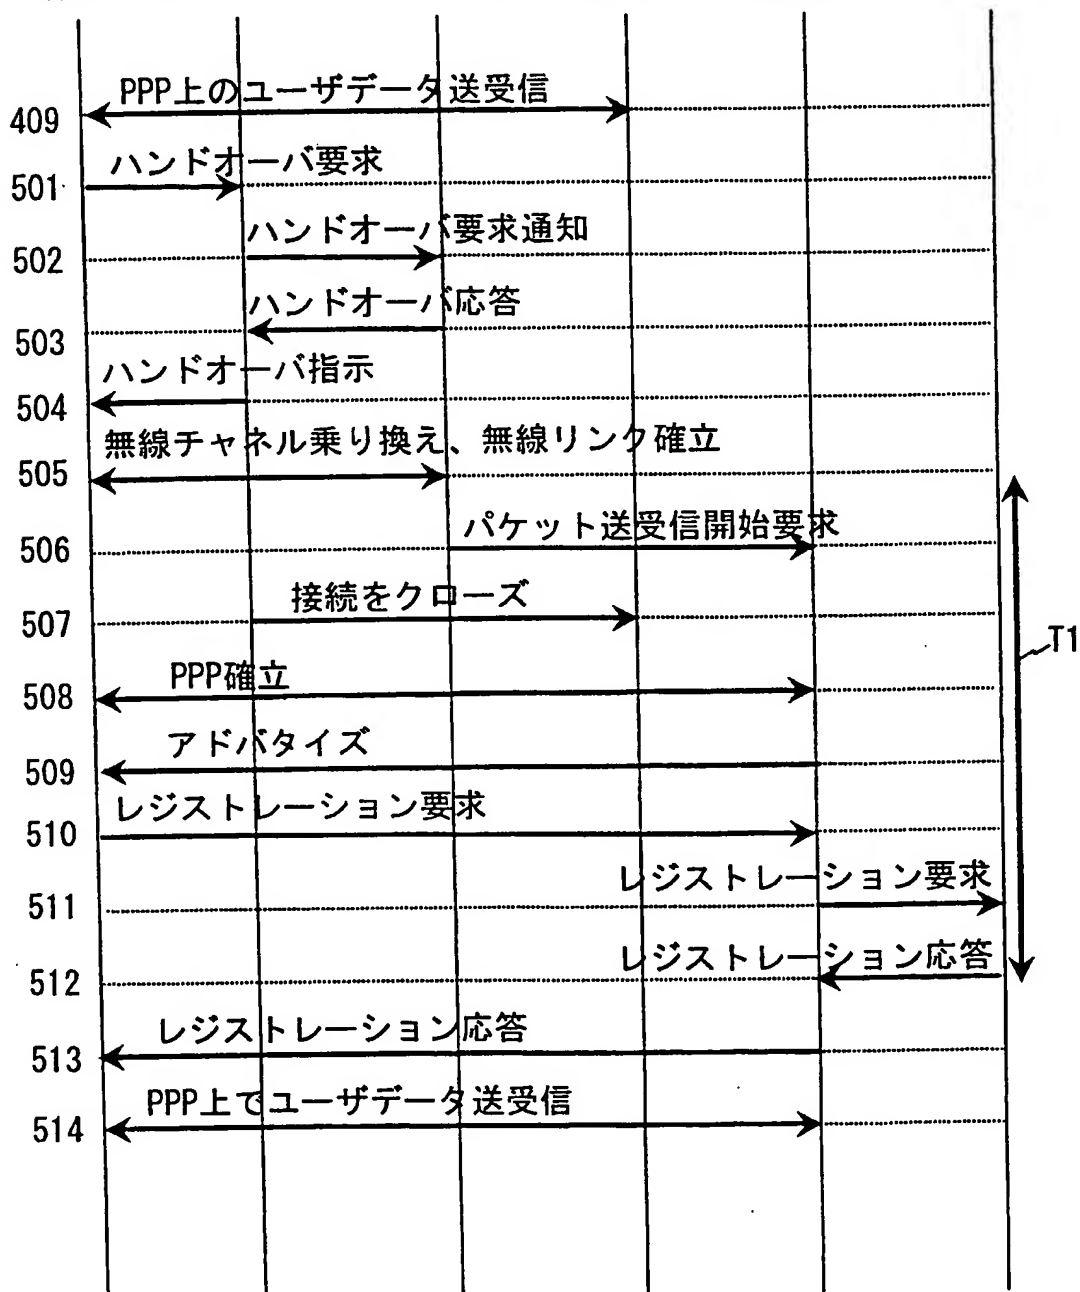 PPP上のユーザデータ送受信
409
ハンドオーバ要求
501
ハンドオーバ要求通知
502
ハンドオーバ応答
503
ハンドオーバ指示
504
無線チャネル乗り換え、無線リンク確立
505
パケット送受信開始要求
506
接続をクローズ
507
T1
PPP確立
508
アドバタイズ
509
レジストレーション要求
510
レジストレーション要求
511
レジストレーション応答
512
レジストレーション応答
513
PPP上でユーザデータ送受信
514